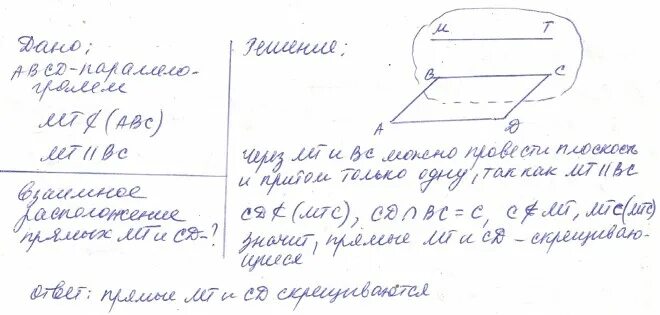 Дано:
ABCD-параллело-
грамм
MT ⊄ (ABC)
MT ∥ BC
Взаимное
расположение
прямых MT и CD-?
Решение:
M T
B C
A D
Через MT и BC можно провести плоскость
и притом только одну, так как MT ∥ BC
CD ⊄ (MTC), CD ∩ BC = C, C ∉ MT, MT ⊂ (MTC)
Значит, прямые MT и CD - скрещиваю-
щиеся
Ответ: прямые MT и CD скрещиваются